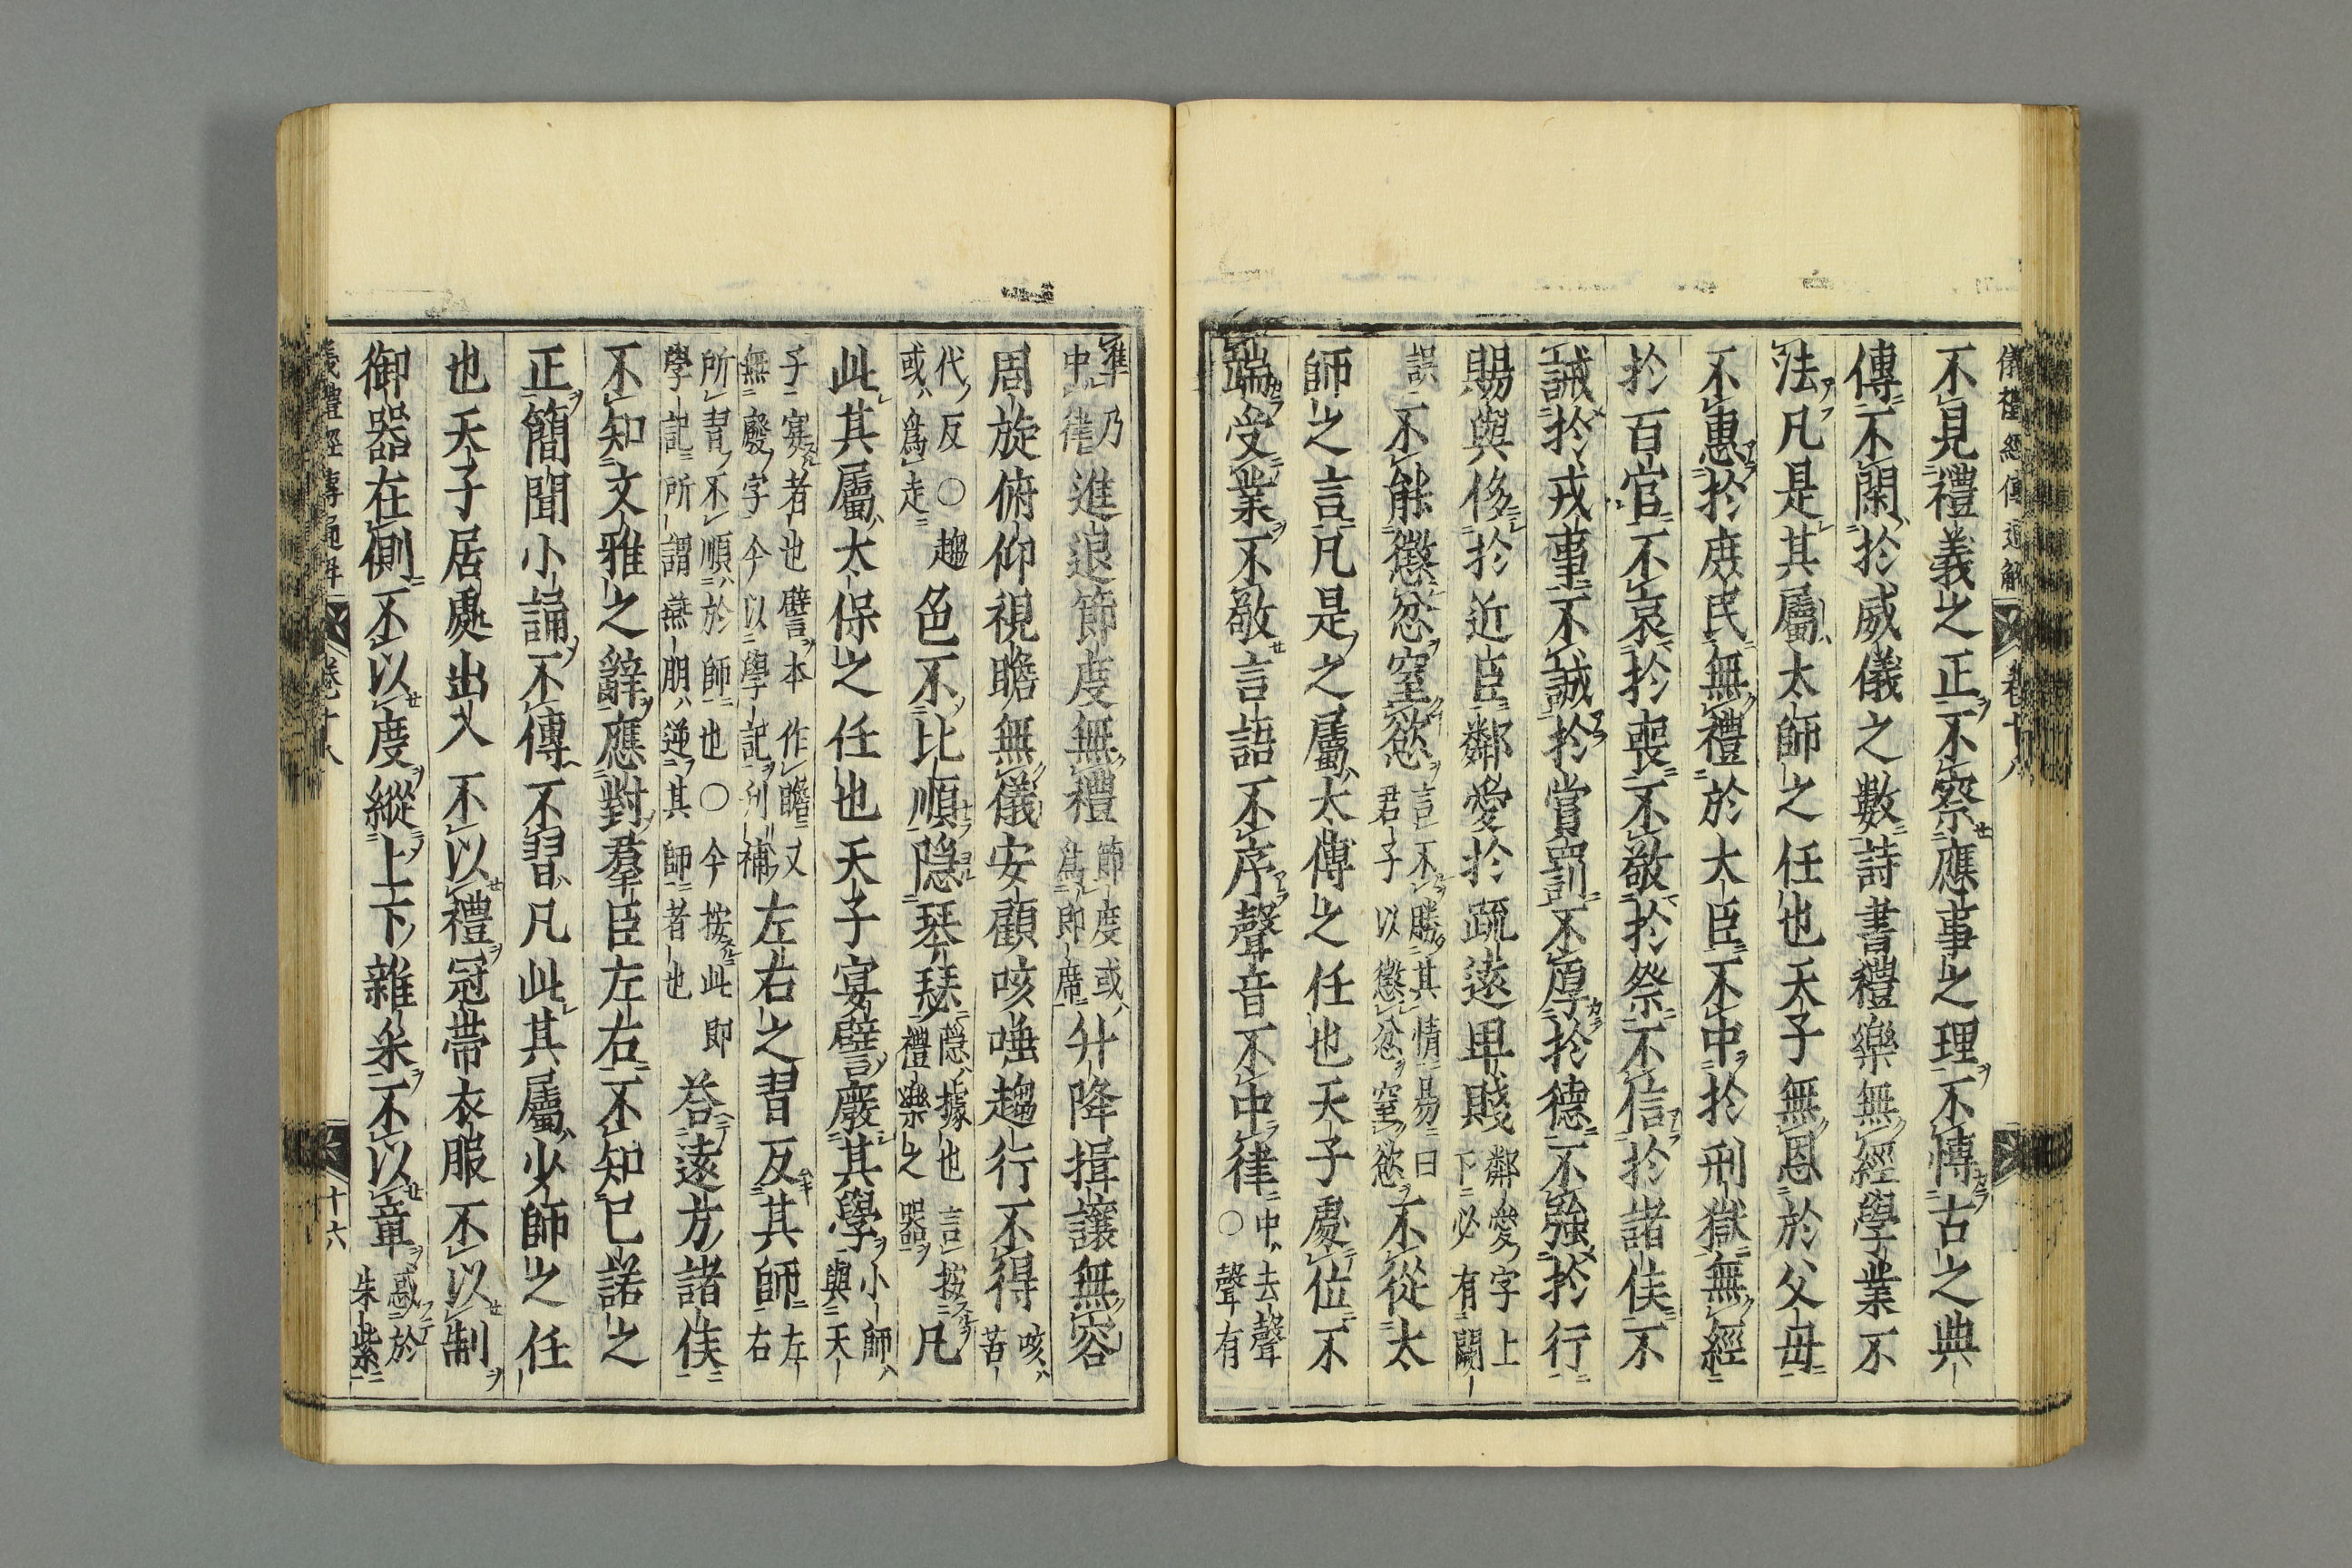 儀禮經傳通解 卷十八
不見禮義之正不察應事之理不博古之典
傳不閑於威儀之數詩書禮樂無經學業不
法凡是其屬太師之任也天子無恩於父母
不惠於庶民無禮於大臣不中於刑獄無經
於百官不哀於喪不敬於祭不信於諸侯不
誡於戎事不誠於賞罰不厚於德不強於行
賜與侈於近臣鄰愛於疏遠卑賤鄰愛字上
下必有闕
誤不能懲忿窒慾言不勝其情易曰
君子以懲忿窒慾不從太
師之言凡是之屬太傅之任也天子處位不
端受業不敬言語不序聲音不中律中去聲
○聲有
準乃
中律進退節度無禮節度或
爲即席升降揖讓無容
周旋俯仰視瞻無儀安顧咳唾趨行不得咳
苦
代反○趨
或爲走色不比順隱琴瑟隱據也言按
禮樂之器凡
此其屬太保之任也天子宴譬廢其學小師
與天
子宴者也譬本作瞻又
無廢字今以學記刋補左右之習反其師左
右
所習不順於師也○今按此即
學記所謂燕朋逆其師者也荅遠方諸侯
不知文雅之辭應對羣臣左右不知已諾之
正簡聞小誦不傳不習凡此其屬少師之任
也天子居處出入不以禮冠帶衣服不以制
御器在側不以度縱上下雜采不以章惑於
朱紫
儀禮經傳通解 卷十八 十六